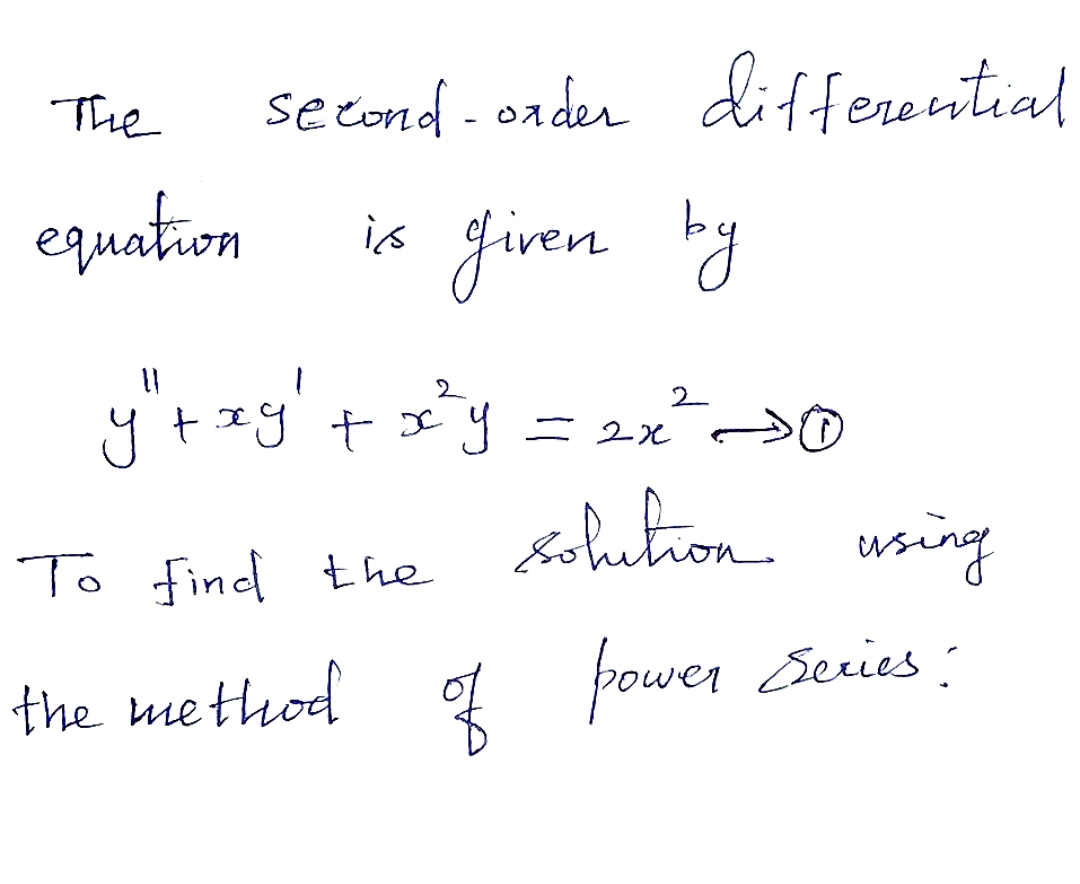 The second-order differential
equation is given by
y'' + xy' + x²y = 2x² → ①
To find the solution using
the method of power series: